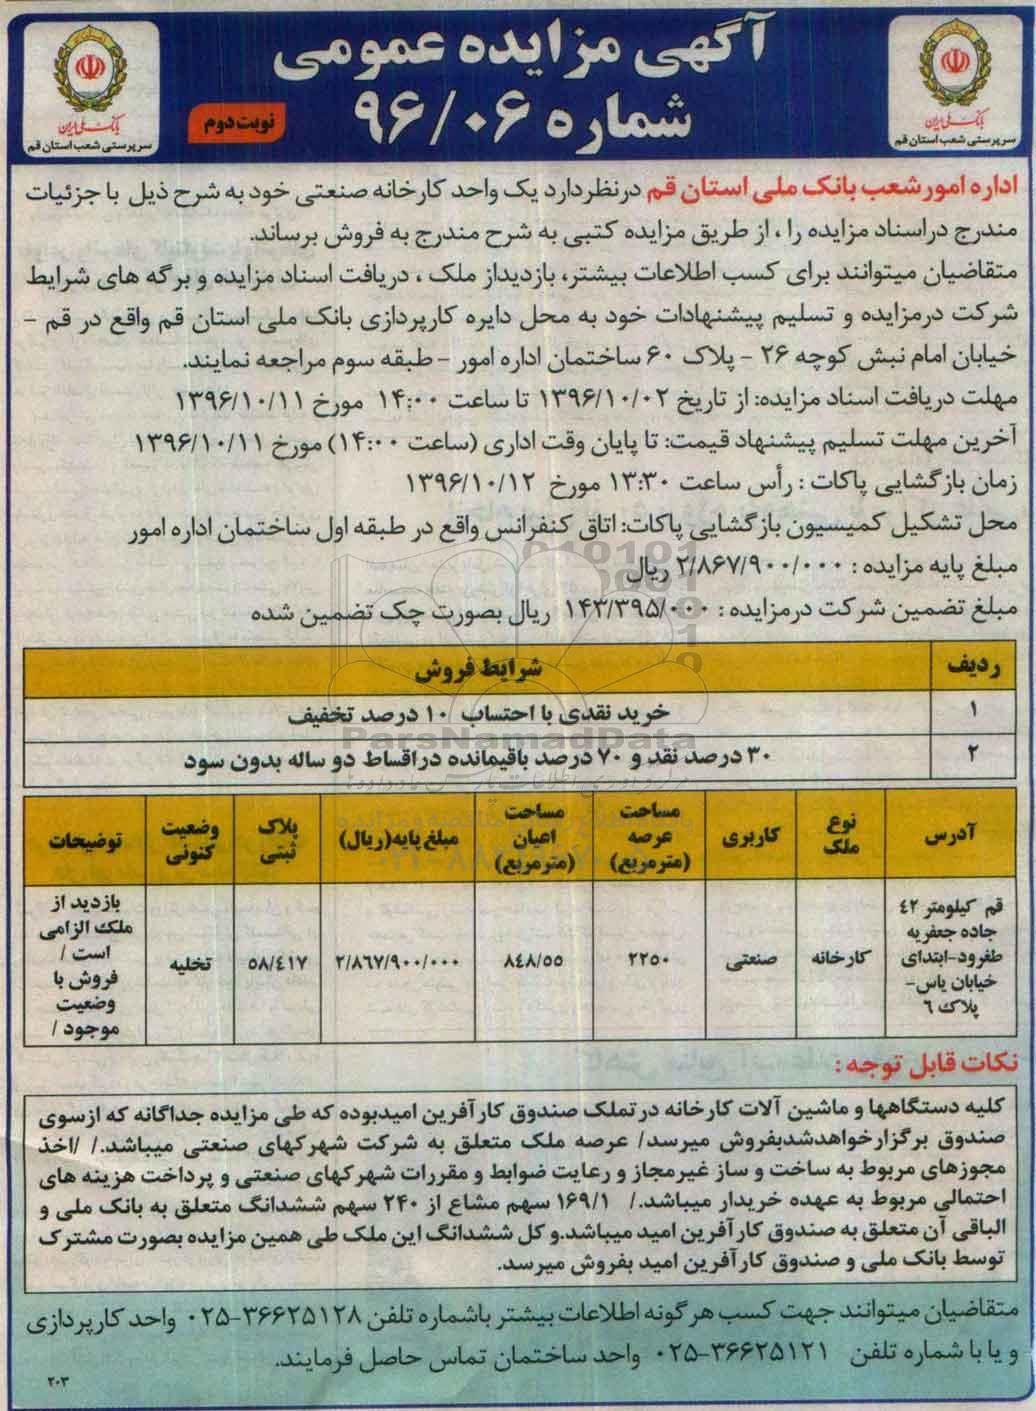 آگهی مزایده عمومی
شماره ۹۶/۰۶
نوبت دوم
بانک ملی ایران
سرپرستی شعب استان قم
بانک ملی ایران
سرپرستی شعب استان قم
اداره امور شعب بانک ملی استان قم درنظردارد یک واحد کارخانه صنعتی خود به شرح ذیل با جزئیات
مندرج دراسناد مزایده را ، از طریق مزایده کتبی به شرح مندرج به فروش برساند.
متقاضیان میتوانند برای کسب اطلاعات بیشتر، بازدیداز ملک ، دریافت اسناد مزایده و برگه های شرایط
شرکت درمزایده و تسلیم پیشنهادات خود به محل دایره کارپردازی بانک ملی استان قم واقع در قم -
خیابان امام نبش کوچه ۲۶ - پلاک ۶۰ ساختمان اداره امور - طبقه سوم مراجعه نمایند.
مهلت دریافت اسناد مزایده: از تاریخ ۱۳۹۶/۱۰/۰۲ تا ساعت ۱۴:۰۰ مورخ ۱۳۹۶/۱۰/۱۱
آخرین مهلت تسلیم پیشنهاد قیمت: تا پایان وقت اداری (ساعت ۱۴:۰۰) مورخ ۱۳۹۶/۱۰/۱۱
زمان بازگشایی پاکات : رأس ساعت ۱۳:۳۰ مورخ ۱۳۹۶/۱۰/۱۲
محل تشکیل کمیسیون بازگشایی پاکات: اتاق کنفرانس واقع در طبقه اول ساختمان اداره امور
مبلغ پایه مزایده : ۲/۸۶۷/۹۰۰/۰۰۰ ریال
مبلغ تضمین شرکت درمزایده : ۱۴۳/۳۹۵/۰۰۰ ریال بصورت چک تضمین شده
ردیف شرایط فروش
۱ خرید نقدی با احتساب ۱۰ درصد تخفیف
۲ ۳۰ درصد نقد و ۷۰ درصد باقیمانده دراقساط دو ساله بدون سود
ParsNamadData
آدرس نوع ملک کاربری مساحت عرصه (مترمربع) مساحت اعیان (مترمربع) مبلغ پایه(ریال) پلاک ثبتی وضعیت کنونی توضیحات
قم کیلومتر ۴۲ جاده جعفریه طغرود-ابتدای خیابان یاس- پلاک ۶ کارخانه صنعتی ۲۲۵۰ ۸۴۸/۵۵ ۲/۸۶۷/۹۰۰/۰۰۰ ۵۸/۴۱۷ تخلیه بازدید از ملک الزامی است / فروش با وضعیت موجود /
نکات قابل توجه :
کلیه دستگاهها و ماشین آلات کارخانه درتملک صندوق کارآفرین امیدبوده که طی مزایده جداگانه که ازسوی
صندوق برگزارخواهدشدبفروش میرسد/ عرصه ملک متعلق به شرکت شهرکهای صنعتی میباشد./ /اخذ
مجوزهای مربوط به ساخت و ساز غیرمجاز و رعایت ضوابط و مقررات شهرکهای صنعتی و پرداخت هزینه های
احتمالی مربوط به عهده خریدار میباشد./ ۱۶۹/۱ سهم مشاع از ۲۴۰ سهم ششدانگ متعلق به بانک ملی و
الباقی آن متعلق به صندوق کارآفرین امید میباشد.و کل ششدانگ این ملک طی همین مزایده بصورت مشترک
توسط بانک ملی و صندوق کارآفرین امید بفروش میرسد.
متقاضیان میتوانند جهت کسب هرگونه اطلاعات بیشتر باشماره تلفن ۳۶۶۲۵۱۲۸-۰۲۵ واحد کارپردازی
و یا با شماره تلفن ۳۶۶۲۵۱۲۱-۰۲۵ واحد ساختمان تماس حاصل فرمایند.
۲۰۳